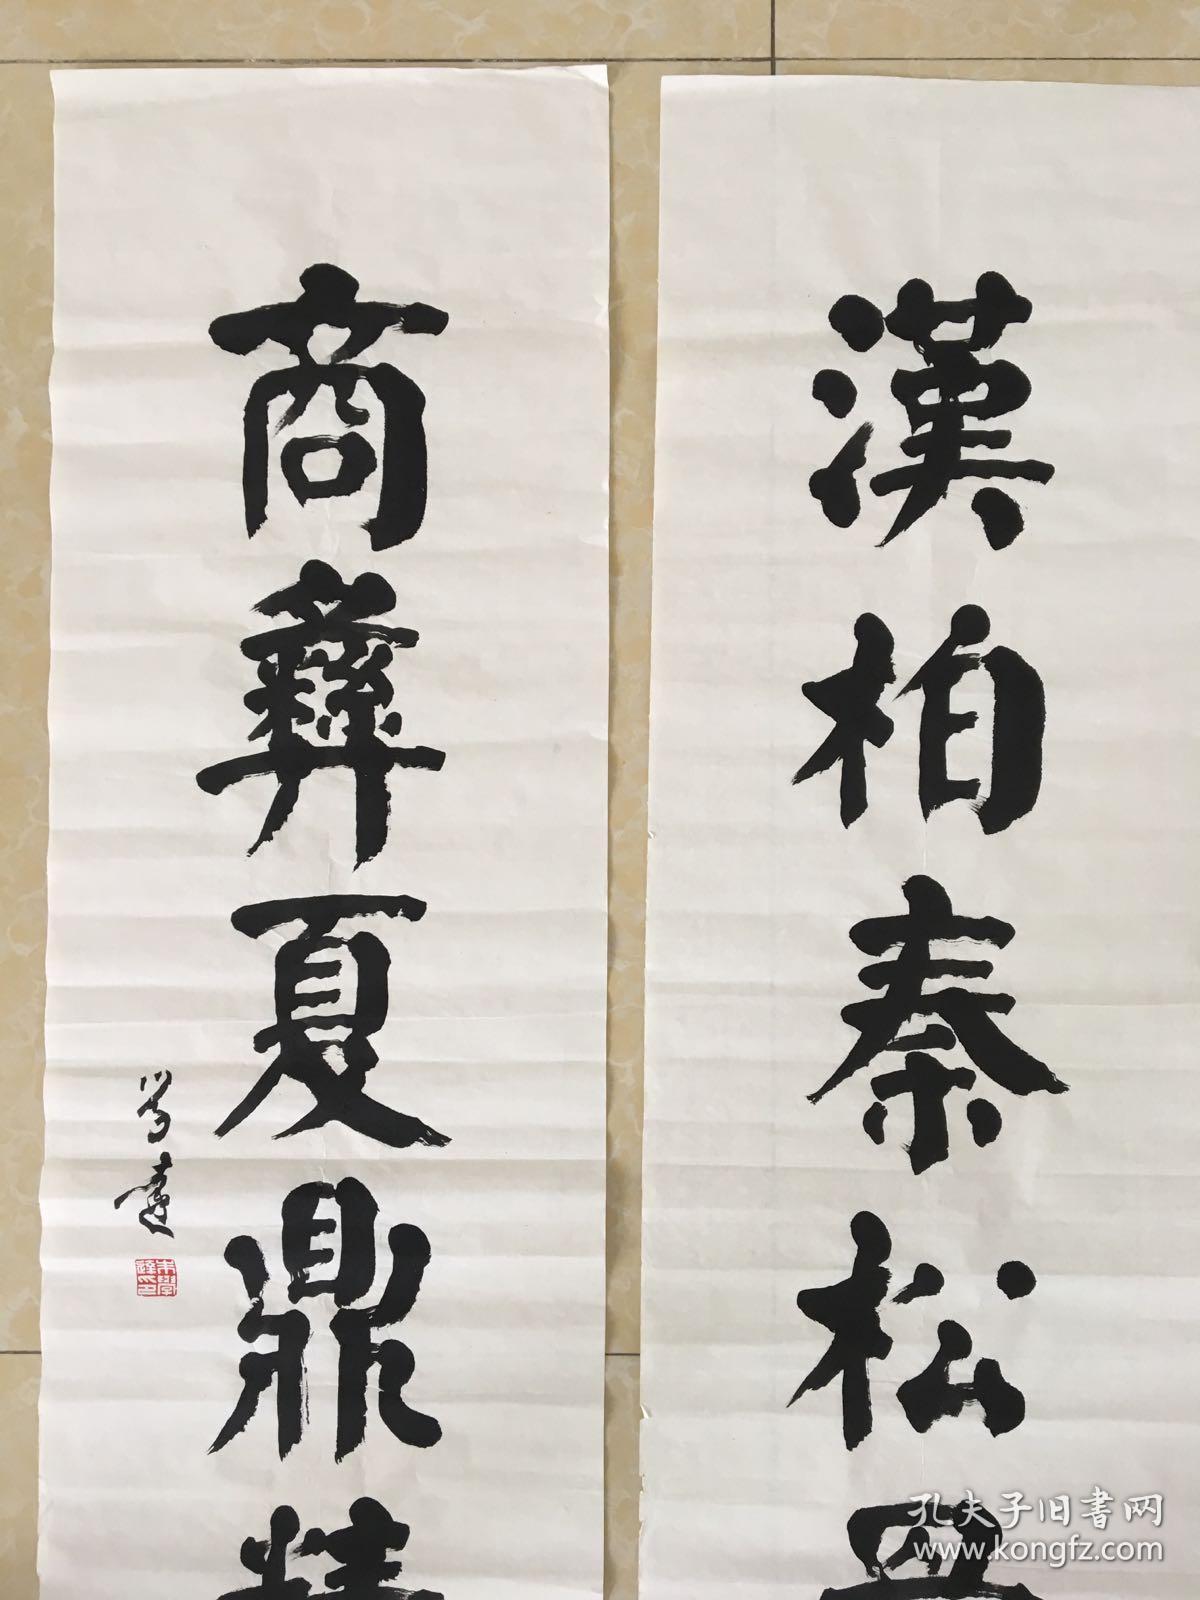 漢柏秦松
商彝夏鼎
学達
朱學達印
孔夫子旧书网
www.kongfz.com